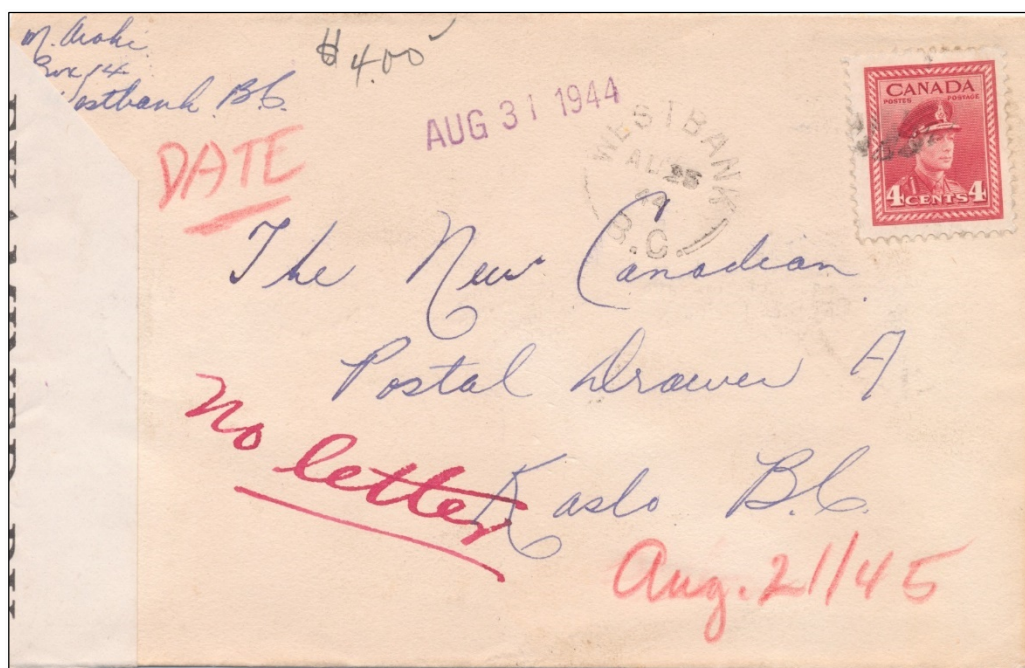 M. Araki
Box 14
Westbank B.C.
$4.00
AUG 31 1944
DATE
WESTBANK
AU 25
44
B.C.
CANADA
POSTES POSTAGE
4 CENTS 4
The New Canadian
Postal Drawer A
Kaslo B.C.
No letter
Aug. 21/45